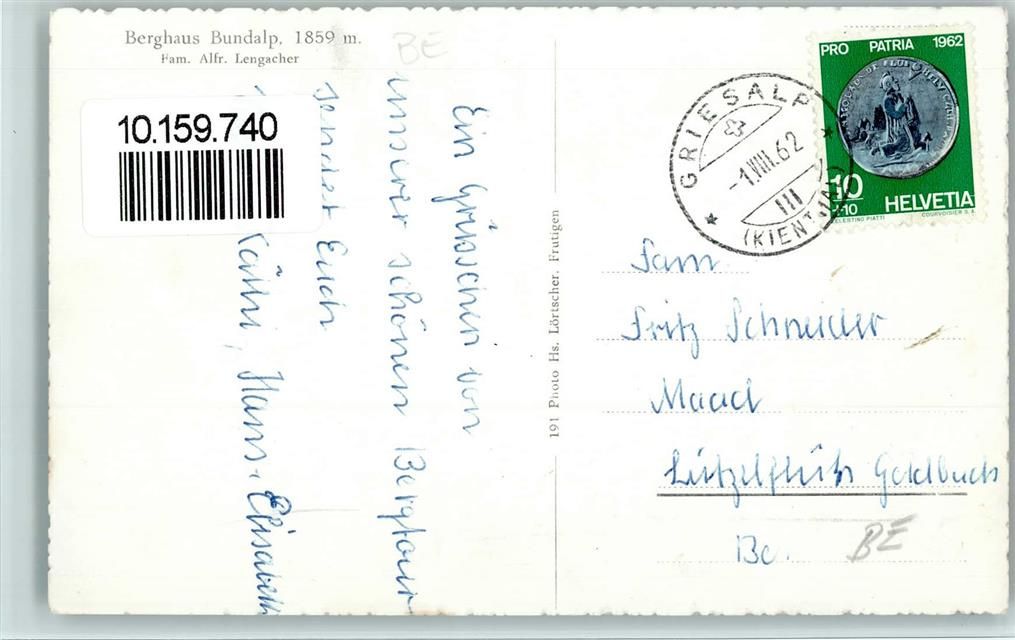 Berghaus Bundalp, 1859 m.
Fam. Alfr. Lengacher
BE
10.159.740
Ein Grüsschen von
unserer schönen Bergtour
sendet Euch
Käthi, Hans, Elisabeth
191 Photo Hs. Lörtscher, Frutigen
GRIESALP
-1.VIII.62
III
(KIENTHAL)
PRO PATRIA 1962
10
+10
HELVETIA
CELESTINO PIATTI
COURVOISIER S.A.
Fam.
Fritz Schneider
Maad
Lützelflüh Goldbach
Be.
BE